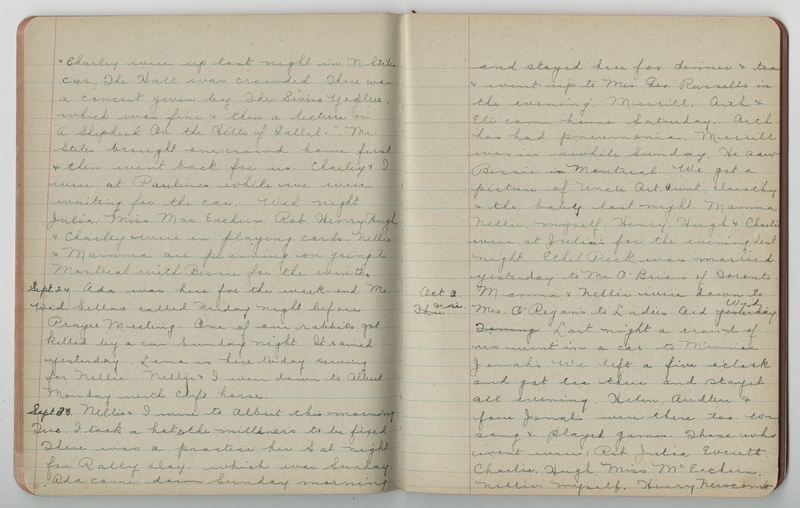 "Charley were up last night in N Stiles
car. The Hall was crowded. There was
a concert given by The Swiss Yodlers.
which was fine & then a lecture on
A Shepherd On the Hills of
Stiles brought one crowd home first
& then went back for us. Charley & I
were at Paulines while we were
waiting for the car. Wed night
Julia, Miss Mac Eachern, Rob, Henry, Hugh
& Charley were in playing cards. Nellie
& Mamma are planning on going to
Montreal with Bessie for the winter.
Sept. 24 Ada was here for the week-end Mr.
called Friday night before
Prayer Meeting. One of our rabbits got
killed by a car Sunday night. It rained
yesterday. Lena is here today sewing
for Nellie. Nellie & I were down to Albert
Monday with horse.
Sept 28 Nellie & I were to Albert this morning
Tue. I took a hat to the milliners to be fixed
There was a practice here Sat night
for Rally day. which was Sunday.
Ada came down Sunday morning
and stayed here for dinner & tea
& went up to Mrs Russells in
the evening. Merrill, Arch &
Eli came home Saturday. Arch
has had pneumonia. Merrill
was in awhile Sunday. He saw
Bessie in Montreal. We got a
picture of Uncle Art, Aunt Dorothy
& the baby last night. Mamma,
Nellie, myself, Henry, Hugh & Charlie
were at Julia's for the evening last
night. Ethel Peck was married
yesterday to Mr. O'Brien of Toronto.
Oct 3 Mamma & Nellie were down to
Mrs. O'Regans to Ladies Aid yesterday. Wed
Last night a crowd of
us went in a car to Minnie
Jonah's. We left a five oclock
and got tea there and stayed
all evening. Helen, &
four Jonahs were there too. We
sang & played games. Those who
went were: Rob, Julia Everett,
Charlie, Hugh Miss McEachern.
Nellie, myself, Henry Newcomb